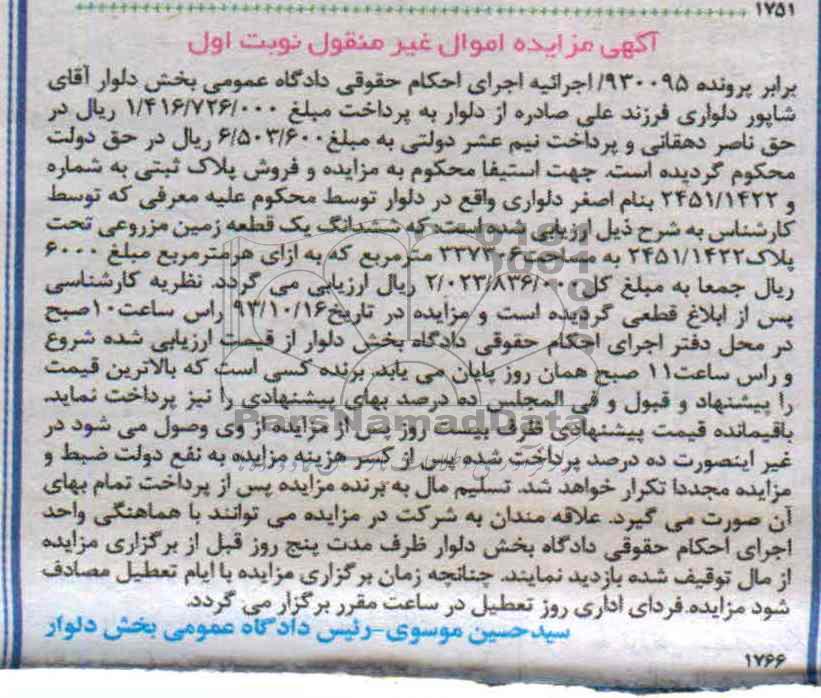 ۱۷۵۱
آگهی مزایده اموال غیر منقول نوبت اول
برابر پرونده ۹۳۰۰۹۵/ اجرائیه اجرای احکام حقوقی دادگاه عمومی بخش دلوار آقای
شاپور دلواری فرزند علی صادره از دلوار به پرداخت مبلغ ۱/۴۱۶/۷۲۶/۰۰۰ ریال در
حق ناصر دهقانی و پرداخت نیم عشر دولتی به مبلغ۶/۵۰۳/۶۰۰ ریال در حق دولت
محکوم گردیده است. جهت استیفا محکوم به مزایده و فروش پلاک ثبتی به شماره
و ۲۴۵۱/۱۴۲۲ بنام اصغر دلواری واقع در دلوار توسط محکوم علیه معرفی که توسط
کارشناس به شرح ذیل ارزیابی شده است. که ششدانگ یک قطعه زمین مزروعی تحت
پلاک۲۴۵۱/۱۴۲۲ به مساحت۳۳۷۳۰۶ مترمربع که به ازای هرمترمربع مبلغ ۶۰۰۰
ریال جمعا به مبلغ کل۲/۰۲۳/۸۳۶/۰۰۰ ریال ارزیابی می گردد. نظریه کارشناسی
پس از ابلاغ قطعی گردیده است و مزایده در تاریخ۹۳/۱۰/۱۶ راس ساعت۱۰صبح
در محل دفتر اجرای احکام حقوقی دادگاه بخش دلوار از قیمت ارزیابی شده شروع
و راس ساعت۱۱ صبح همان روز پایان می یابد. برنده کسی است که بالاترین قیمت
را پیشنهاد و قبول و فی المجلس ده درصد بهای پیشنهادی را نیز پرداخت نماید.
ParsNamadData
باقیمانده قیمت پیشنهادی ظرف بیست روز پس از مزایده از وی وصول می شود در
غیر اینصورت ده درصد پرداخت شده پس از کسر هزینه مزایده به نفع دولت ضبط و
مزایده مجددا تکرار خواهد شد. تسلیم مال به برنده مزایده پس از پرداخت تمام بهای
آن صورت می گیرد. علاقه مندان به شرکت در مزایده می توانند با هماهنگی واحد
اجرای احکام حقوقی دادگاه بخش دلوار ظرف مدت پنج روز قبل از برگزاری مزایده
از مال توقیف شده بازدید نمایند. چنانچه زمان برگزاری مزایده با ایام تعطیل مصادف
شود مزایده.فردای اداری روز تعطیل در ساعت مقرر برگزار می گردد.
سیدحسین موسوی-رئیس دادگاه عمومی بخش دلوار
۱۷۶۶